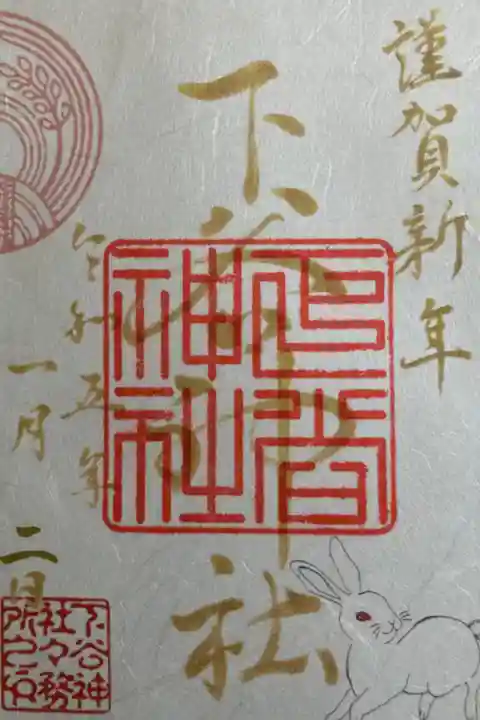 謹賀新年
下谷神社
令和五年
一月二日
下谷神
社々務
所之印
下谷
神社